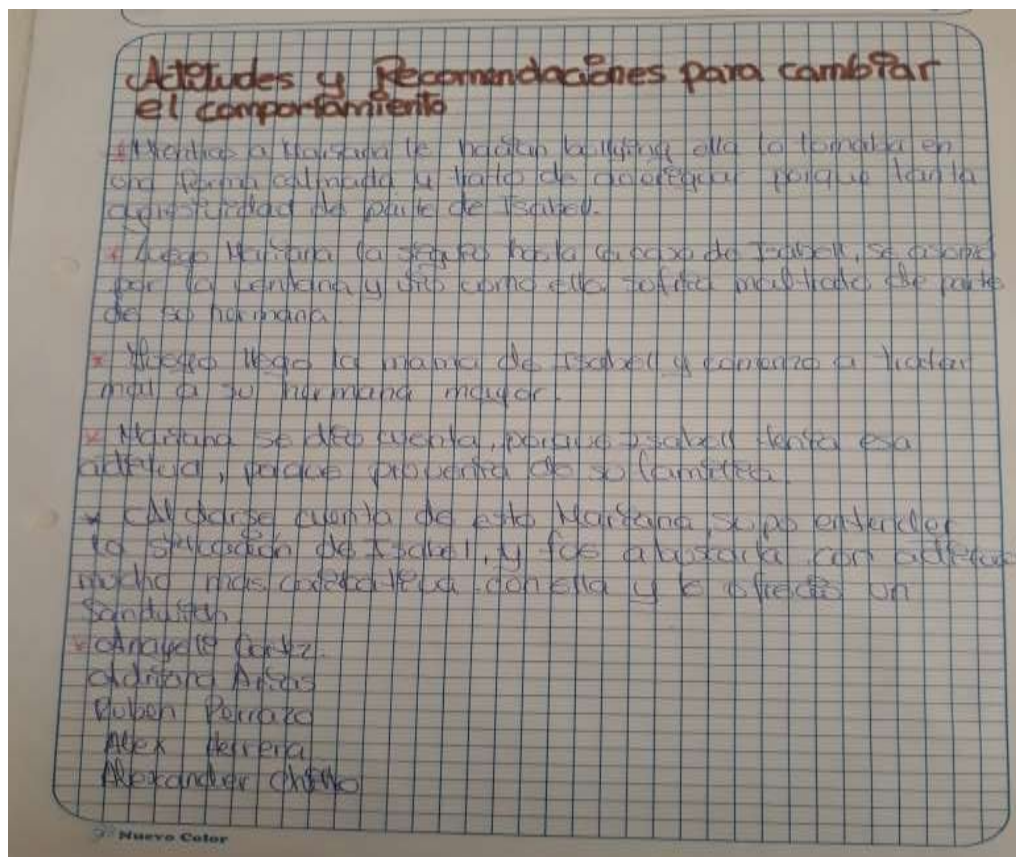 Actitudes y Recomendaciones para cambiar
el comportamiento
* Mientras a Mariana le hacian bullying ella lo tomaba en
una forma calmada y trato de averiguar porque tanta
agresividad de parte de Isabel.
* Luego Mariana la siguio hasta la casa de Isabell, se asomo
por la ventana y vio como ella sufria maltrado de parte
de su hermana.
* Luego llego la mama de Isabel y comenzo a tratar
mal a su hermana mayor.
* Mariana se dio cuenta, porque Isabell tenia esa
actitud, porque provenia de su familia.
* Al darse cuenta de esto Mariana, supo entender
la situación de Isabel, y fue a buscarla con actitud
mucho mas con ella y le ofrecio un
Sanduitch
* Anayeli
Adriana Arias
Ruben Perrazo
Alex Herrera
Alexander
Nuevo Color